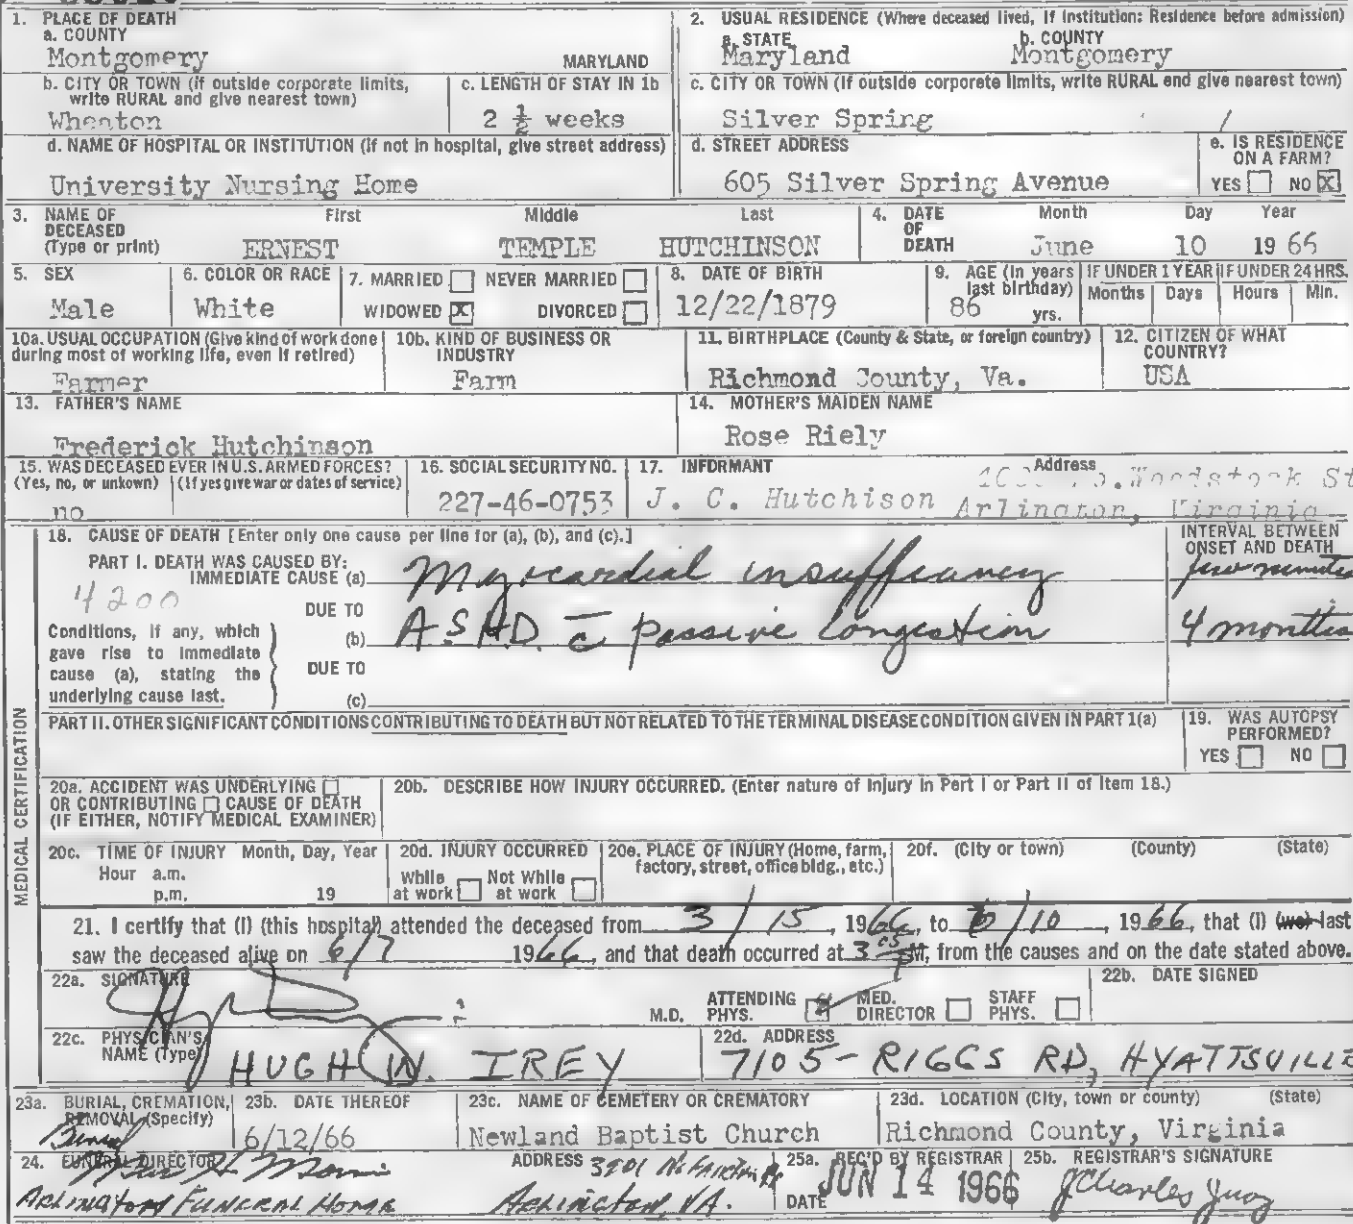 1. PLACE OF DEATH
a. COUNTY
Montgomery MARYLAND
2. USUAL RESIDENCE (Where deceased lived, If Institution: Residence before admission)
a. STATE b. COUNTY
Maryland Montgomery
b. CITY OR TOWN (if outside corporate limits, write RURAL and give nearest town)
Wheaton
c. LENGTH OF STAY IN 1b
2 ½ weeks
c. CITY OR TOWN (If outside corporate limits, write RURAL and give nearest town)
Silver Spring
d. NAME OF HOSPITAL OR INSTITUTION (If not in hospital, give street address)
University Nursing Home
d. STREET ADDRESS
605 Silver Spring Avenue
e. IS RESIDENCE ON A FARM?
YES NO X
3. NAME OF DECEASED (Type or print)
First Middle Last
ERNEST TEMPLE HUTCHINSON
4. DATE OF DEATH Month Day Year
June 10 19 66
5. SEX
Male
6. COLOR OR RACE
White
7. MARRIED NEVER MARRIED
WIDOWED X DIVORCED
8. DATE OF BIRTH
12/22/1879
9. AGE (In years last birthday)
86 yrs.
IF UNDER 1 YEAR IF UNDER 24 HRS.
Months Days Hours Min.
10a. USUAL OCCUPATION (Give kind of work done during most of working life, even if retired)
Farmer
10b. KIND OF BUSINESS OR INDUSTRY
Farm
11. BIRTHPLACE (County & State, or foreign country)
Richmond County, Va.
12. CITIZEN OF WHAT COUNTRY?
USA
13. FATHER'S NAME
Frederick Hutchinson
14. MOTHER'S MAIDEN NAME
Rose Riely
15. WAS DECEASED EVER IN U.S. ARMED FORCES?
(Yes, no, or unkown) (If yes give war or dates of service)
no
16. SOCIAL SECURITY NO.
227-46-0753
17. INFORMANT Address
J. C. Hutchison Woodstock St
Arlington, Virginia
MEDICAL CERTIFICATION
18. CAUSE OF DEATH [Enter only one cause per line for (a), (b), and (c).]
INTERVAL BETWEEN ONSET AND DEATH
PART I. DEATH WAS CAUSED BY:
IMMEDIATE CAUSE (a) Myocardial insufficiency few minutes
4200
DUE TO
(b) A.S.H.D. c̄ passive congestion 4 months
Conditions, if any, which gave rise to immediate cause (a), stating the underlying cause last.
DUE TO
(c)
PART II. OTHER SIGNIFICANT CONDITIONS CONTRIBUTING TO DEATH BUT NOT RELATED TO THE TERMINAL DISEASE CONDITION GIVEN IN PART 1(a)
19. WAS AUTOPSY PERFORMED?
YES NO
20a. ACCIDENT WAS UNDERLYING
OR CONTRIBUTING CAUSE OF DEATH
(IF EITHER, NOTIFY MEDICAL EXAMINER)
20b. DESCRIBE HOW INJURY OCCURRED. (Enter nature of Injury in Part I or Part II of Item 18.)
20c. TIME OF INJURY Month, Day, Year
Hour a.m.
p.m. 19
20d. INJURY OCCURRED
While at work Not While at work
20e. PLACE OF INJURY (Home, farm, factory, street, office bldg., etc.)
20f. (City or town) (County) (State)
21. I certify that (I) (this hospital) attended the deceased from 3/15, 1966, to 6/10, 1966, that (I) (we) last
saw the deceased alive on 6/7 1966, and that death occurred at 3 05 M, from the causes and on the date stated above.
22a. SIGNATURE
M.D. ATTENDING PHYS. MED. DIRECTOR STAFF PHYS.
22b. DATE SIGNED
22c. PHYSICIAN'S NAME (Type)
HUGH W. IREY
22d. ADDRESS
7105 - RIGGS RD, HYATTSVILLE
23a. BURIAL, CREMATION, REMOVAL (Specify)
Burial
23b. DATE THEREOF
6/12/66
23c. NAME OF CEMETERY OR CREMATORY
Newland Baptist Church
23d. LOCATION (City, town or county) (State)
Richmond County, Virginia
24. FUNERAL DIRECTOR
ARLINGTON FUNERAL HOME
ADDRESS 3901 N. Fairfax Dr
Arlington, VA.
25a. REC'D BY REGISTRAR
DATE JUN 14 1966
25b. REGISTRAR'S SIGNATURE
J Charles Judge